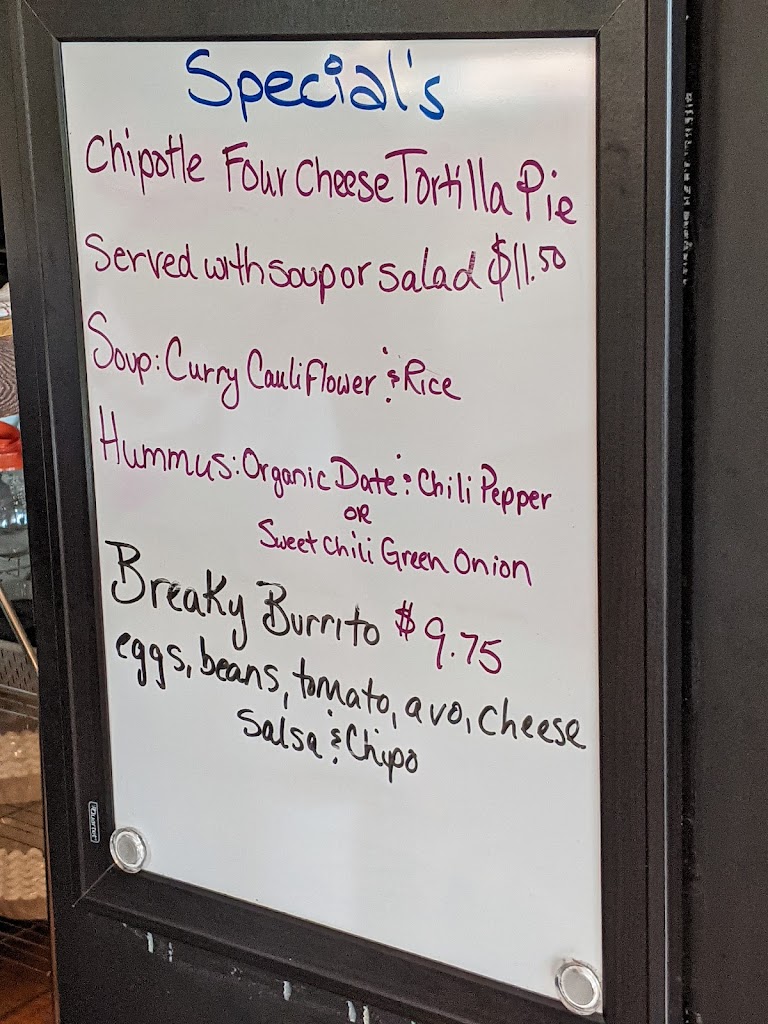 Special's
Chipotle Four Cheese Tortilla Pie
Served with soup or salad $11.50
Soup: Curry Cauliflower & Rice
Hummus: Organic Date & Chili Pepper
OR
Sweet Chili Green Onion
Breaky Burrito $9.75
eggs, beans, tomato, avo, cheese
Salsa & Chipo
Quartet